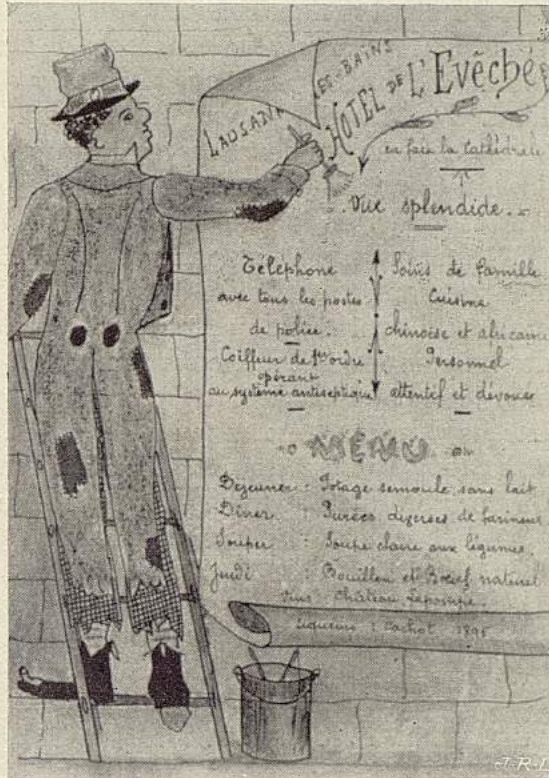 LAUSANNE-LES-BAINS
HOTEL DE L'EVÊCHÉ
en face la Cathédrale
Vue splendide.
Téléphone
avec tous les postes
de police.
Coiffeur de 1er ordre
opérant
au système antiseptique
Soins de famille
Cuisine
chinoise et africaine
Personnel
attentif et dévoué
MENU
Déjeuner : Potage semoule sans lait
Dîner : Purées diverses de farineux
Souper : Soupe claire aux légumes.
Jeudi : Bouillon et Bœuf naturel
Vins : Château Lapompe.
Liqueurs : Cachot
J-R-L